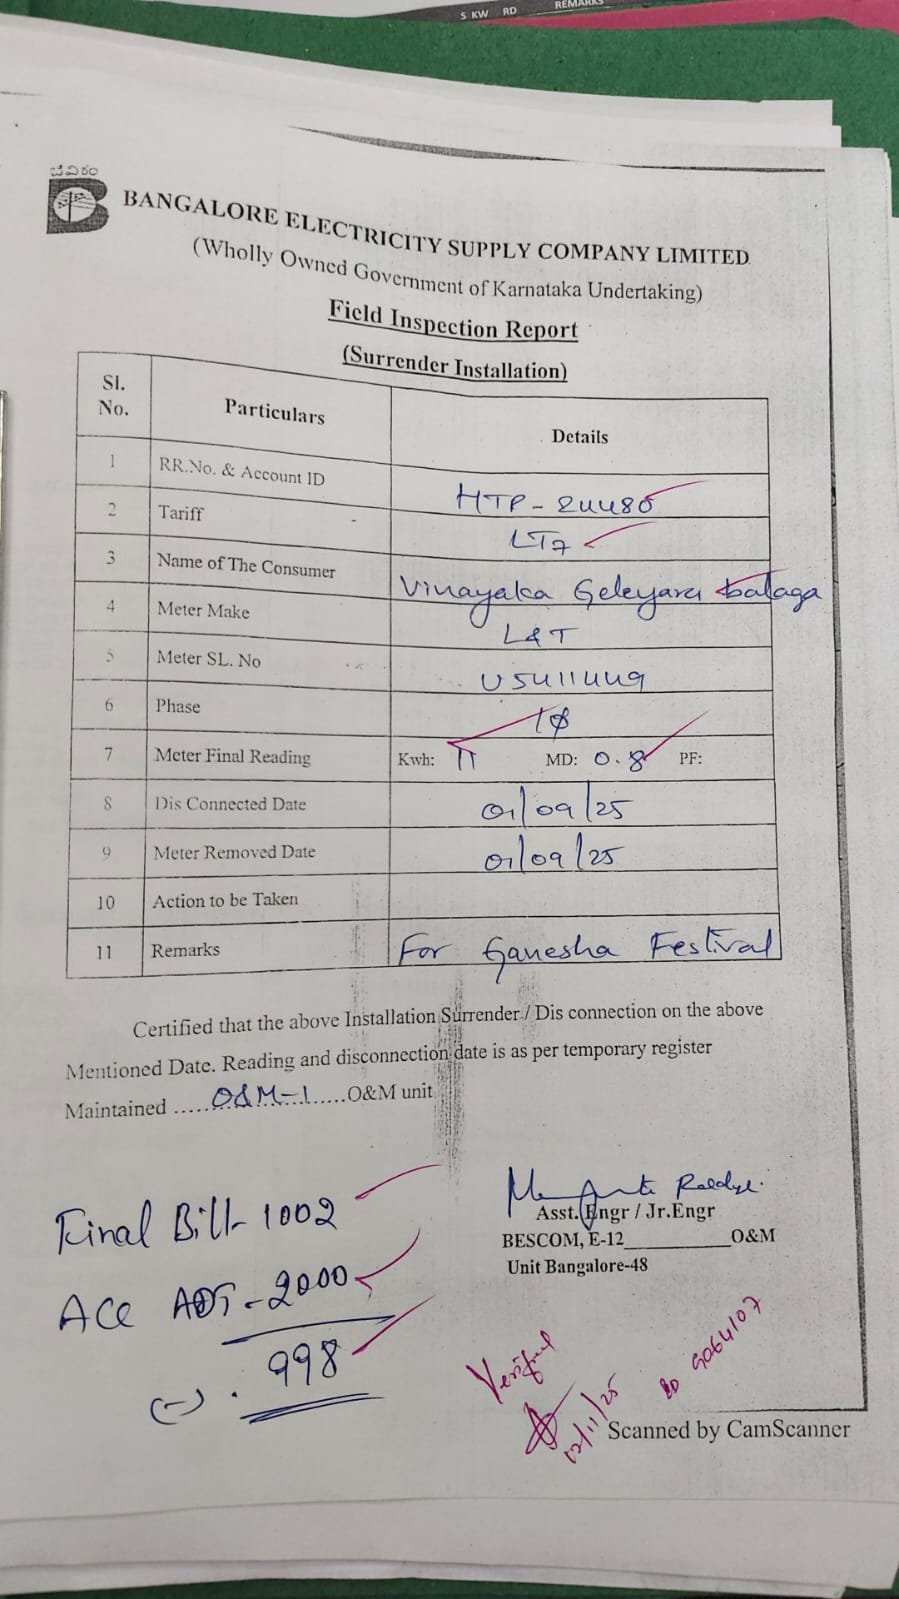 S KW RD REMARKS
ಬೆವಿಕಂ
BANGALORE ELECTRICITY SUPPLY COMPANY LIMITED
(Wholly Owned Government of Karnataka Undertaking)
Field Inspection Report
(Surrender Installation)
Sl. No. Particulars Details
1 RR.No. & Account ID HTP-24480
2 Tariff LT7
3 Name of The Consumer Vinayaka Geleyara balaga
4 Meter Make L&T
5 Meter SL. No U5411449
6 Phase 1φ
7 Meter Final Reading Kwh: 11 MD: 0.8 PF:
8 Dis Connected Date 01/09/25
9 Meter Removed Date 01/09/25
10 Action to be Taken
11 Remarks For Ganesha Festival
Certified that the above Installation Surrender / Dis connection on the above
Mentioned Date. Reading and disconnection date is as per temporary register
Maintained .....O&M-1.....O&M unit
Final Bill - 1002
Acc - 2000
(-). 998
Asst.Engr / Jr.Engr
BESCOM, E-12__________O&M
Unit Bangalore-48
Verified
02/11/25
9064107
Scanned by CamScanner